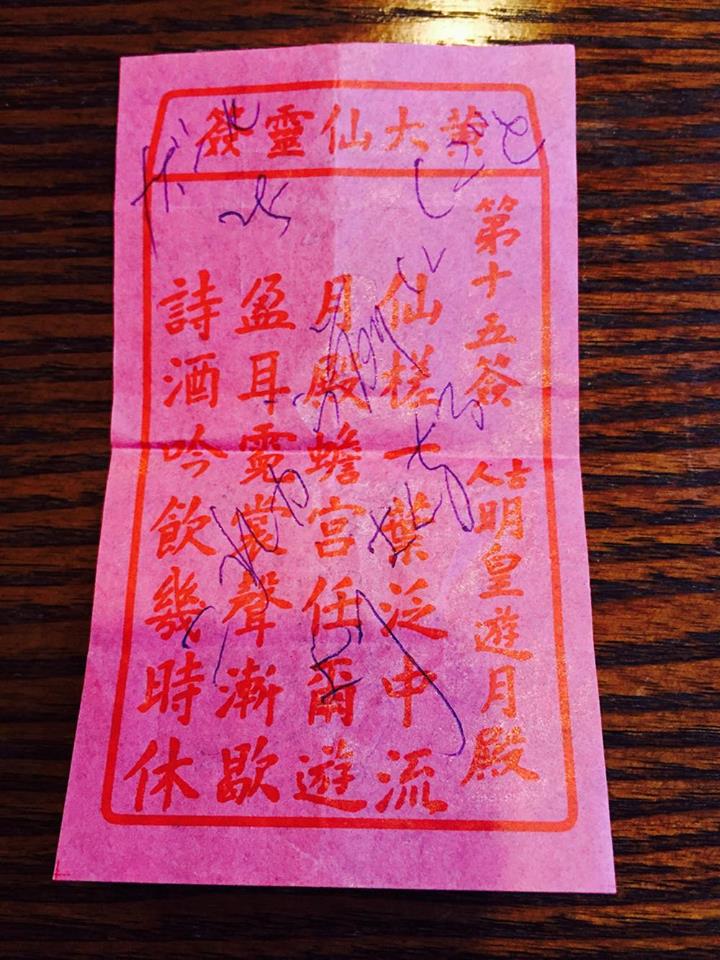 黃大仙靈簽
第十五簽
古人
明皇遊月殿
仙槎一葉泛中流
月殿蟾宮任爾遊
盈耳霓裳聲漸歇
詩酒吟飲幾時休